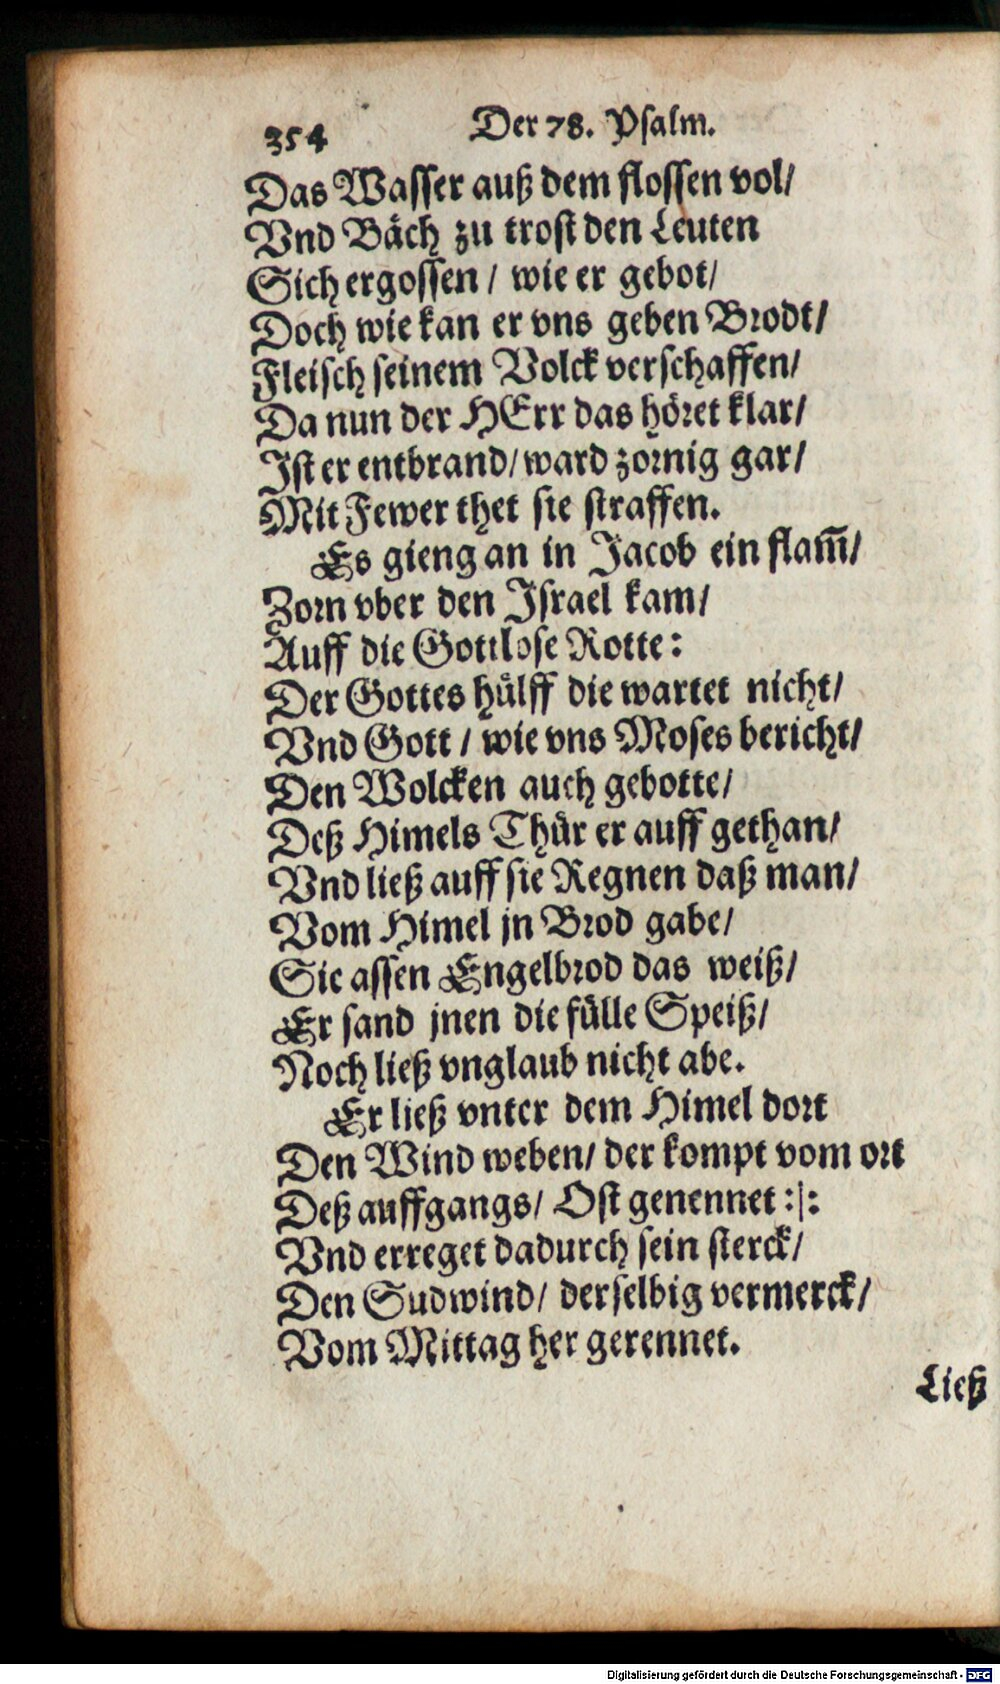 354 Der 78. Psalm.
Das Wasser auß dem flossen vol/
Vnd Bäch zu trost den Leuten
Sich ergossen / wie er gebot/
Doch wie kan er vns geben Brodt/
Fleisch seinem Volck verschaffen/
Da nun der HErr das höret klar/
Ist er entbrand/ ward zornig gar/
Mit Fewer thet sie straffen.
Es gieng an in Jacob ein flam̅/
Zorn vber den Israel kam/
Auff die Gottlose Rotte:
Der Gottes hülff die wartet nicht/
Vnd Gott / wie vns Moses bericht/
Den Wolcken auch gebotte/
Deß Himels Thür er auff gethan/
Vnd ließ auff sie Regnen daß man/
Vom Himel jn Brod gabe/
Sie assen Engelbrod das weiß/
Er sand jnen die fülle Speiß/
Noch ließ vnglaub nicht abe.
Er ließ vnter dem Himel dort
Den Wind weben/ der kompt vom ort
Deß auffgangs/ Ost genennet :|:
Vnd erreget dadurch sein sterck/
Den Sudwind/ derselbig vermerck/
Vom Mittag her gerennet.
Ließ
Digitalisierung gefördert durch die Deutsche Forschungsgemeinschaft - DFG